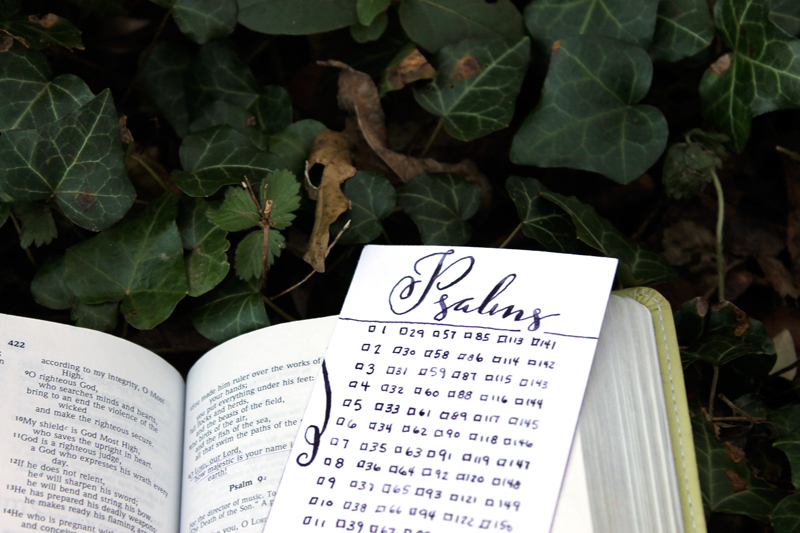 422
according to my integrity, O Most
9O righteous God,
who searches minds and hearts,
bring to an end the violence of the
wicked
and make the righteous secure.
10My shield is God Most High,
who saves the upright in heart.
11God is a righteous judge,
a God who expresses his wrath every
day.
12If he does not relent,
he will sharpen his sword;
he will bend and string his bow.
13He has prepared his deadly weapons;
he makes ready his flaming
14He who is pregnant with
and conceives
made him ruler over the works of
your hands;
put everything under his feet:
flocks and herds,
and the beasts of the field,
birds of the air,
and the fish of the sea,
all that swim the paths of the
LORD, our Lord,
how majestic is your name in
earth!
Psalm 9
For the director of music. To
"The Death of the Son." A
you, O LORD
Psalms
1 29 57 85 113 141
2 30 58 86 114 142
3 31 59 87 115 143
4 32 60 88 116 144
5 33 61 89 117 145
6 34 62 90 118 146
7 35 63 91 119 147
8 36 64 92 120 148
9 37 65 93 121 149
10 38 66 94 122 150
11 39 67